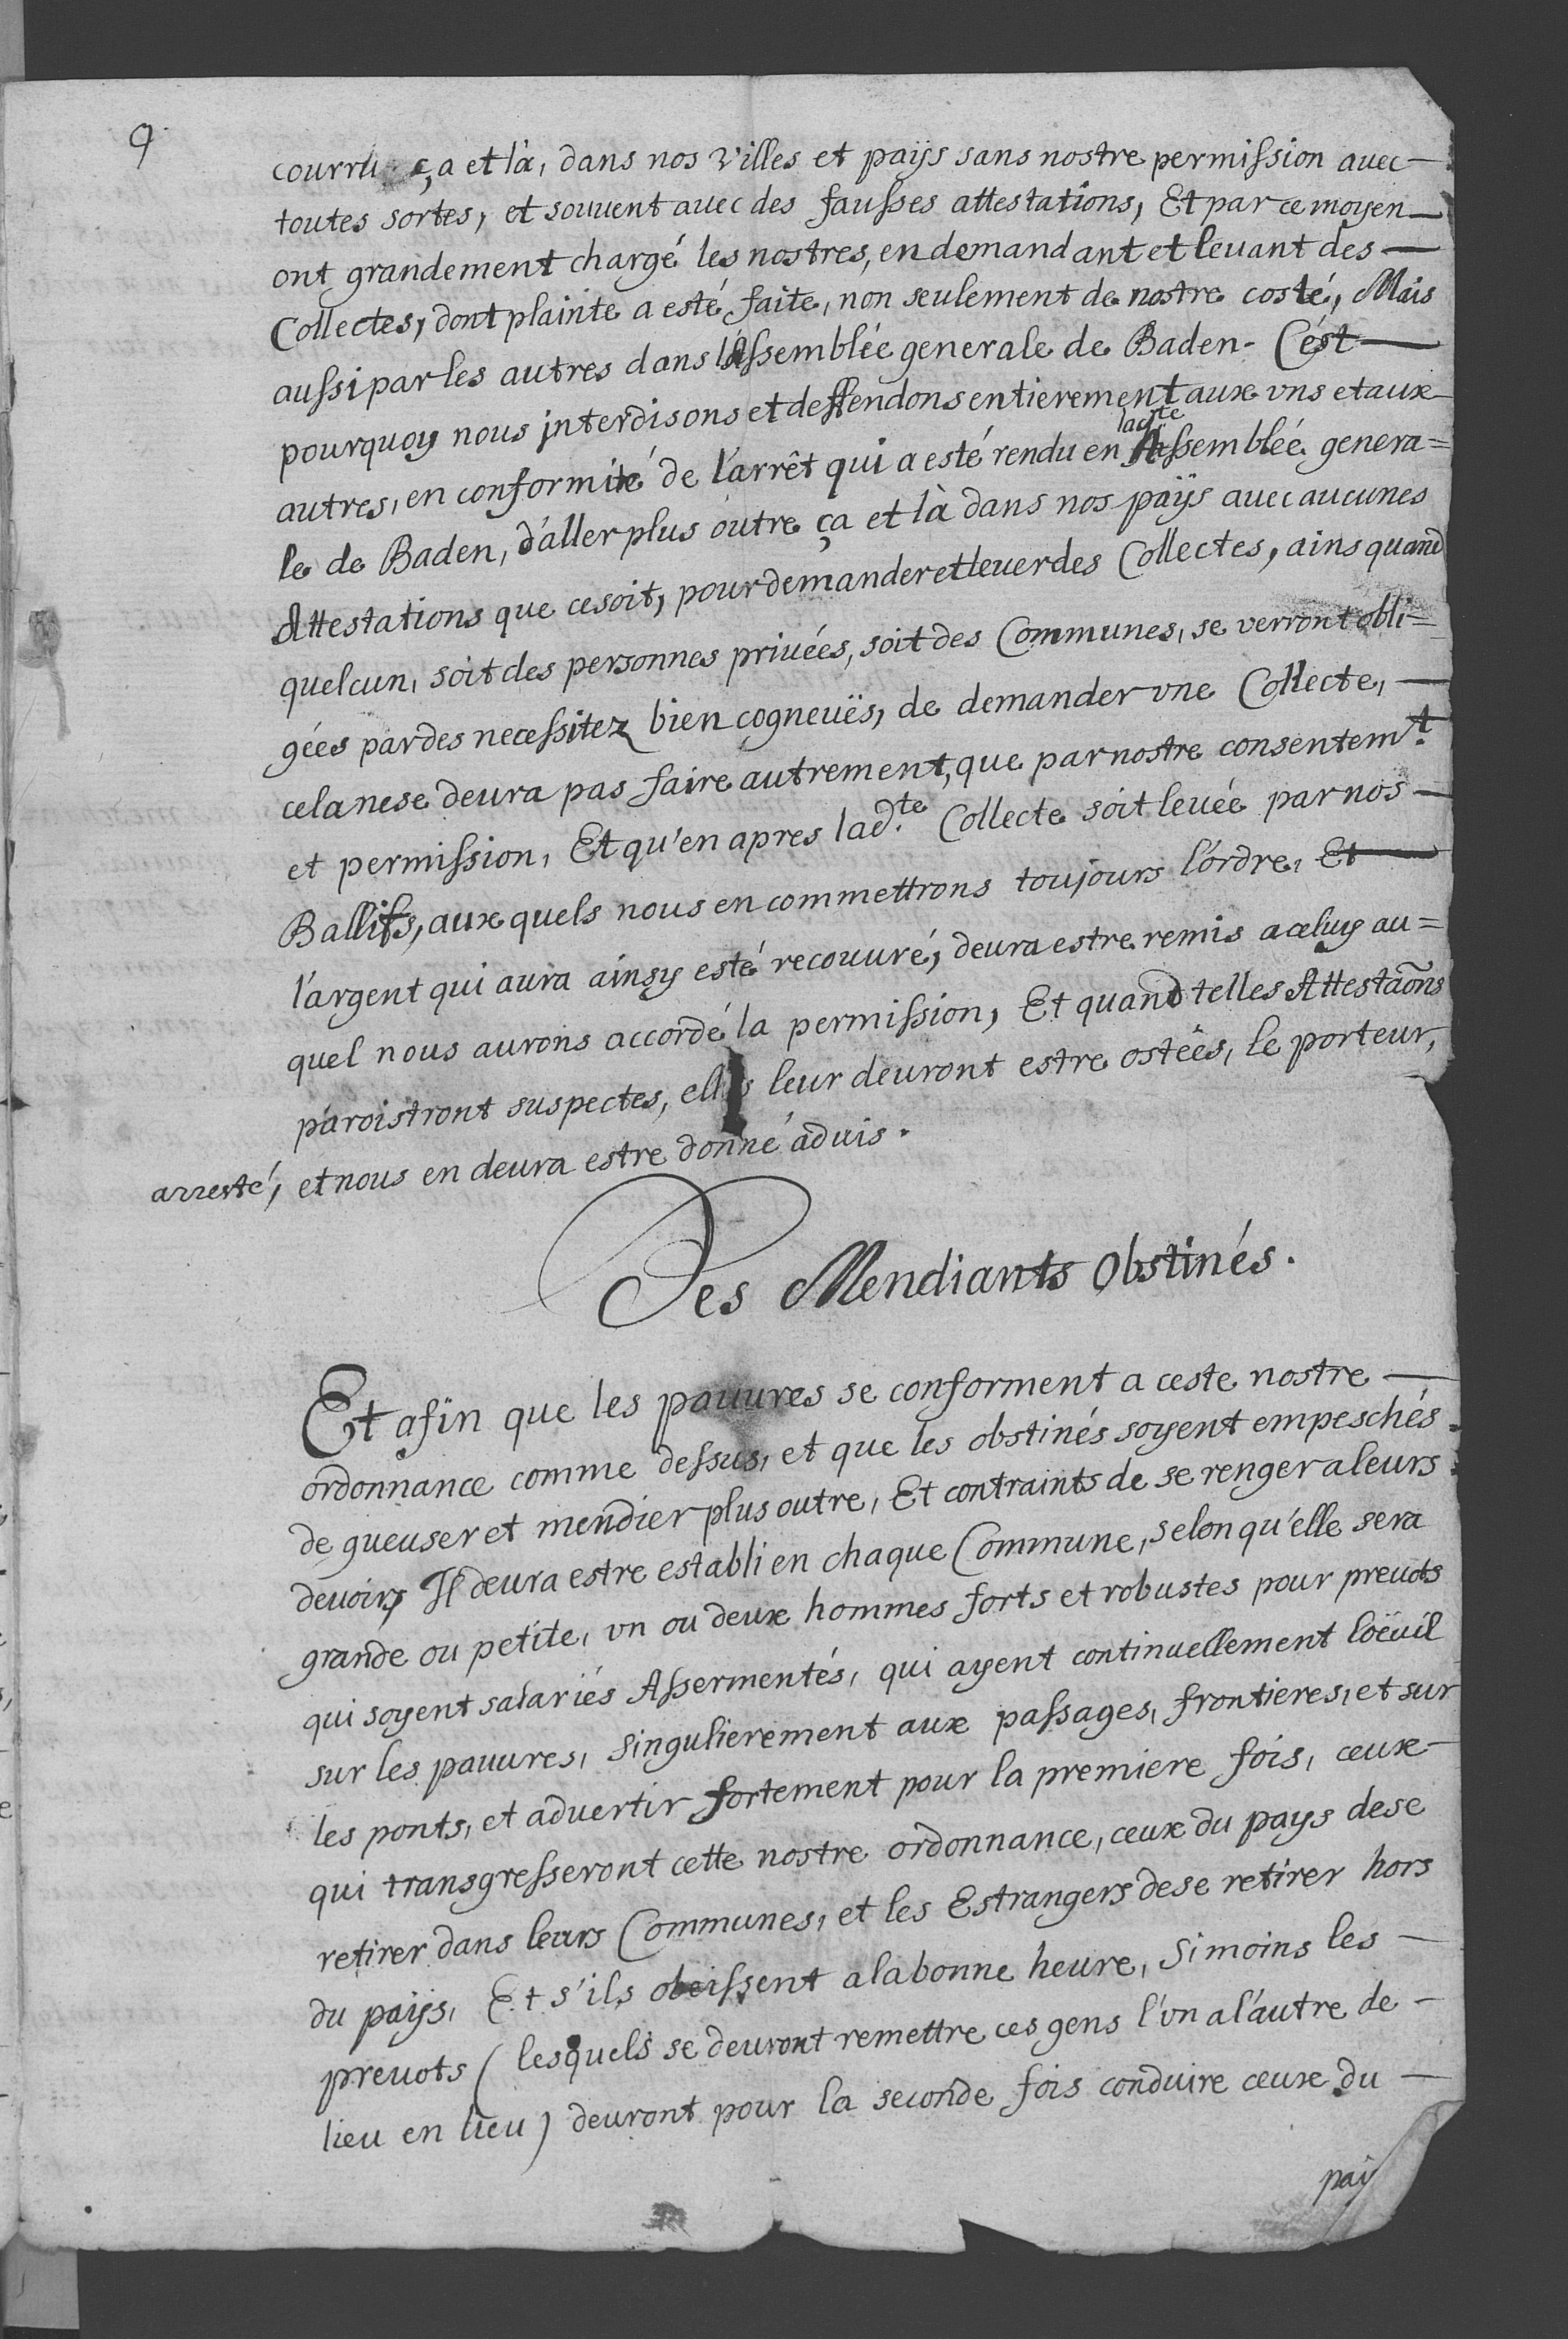 9
courru ça et là, dans nos Villes et païjs sans nostre permission auec
toutes sortes, et souuent auec des fausses attestations, Et par ce moyen
ont grandement chargé les nostres, en demandant et leuant des
Collectes, dont plainte a esté faite, non seulement de nostre costé, Mais
aussi par les autres dans l'Assemblée generale de Baden. C'est
pourquoy nous jnterdisons et deffendons entierement aux vns et aux
autres, en conformité de l'arrêt qui a esté rendu en ladte Assemblée genera=
le de Baden, d'aller plus outre ça et là dans nos païjs auec aucunes
Attestations que ce soit, pour demander et leuer des Collectes, ains quand
quelcun, soit des personnes priuées, soit des Communes, se verront obli=
gées par des necessitez bien cogneuës, de demander vne Collecte,
cela ne se deura pas faire autrement, que par nostre consentemt.
et permission, Et qu'en apres lad.te Collecte soit leuée par nos
Ballifs, aux quels nous en commettrons toujours l'ordre, Et
l'argent qui aura ainsy esté recouuré, deura estre remis a celuy au=
quel nous aurons accordé la permission, Et quand telles Attestaõns
paroistront suspectes, elles leur deuront estre ostées, le porteur,
arresté, et nous en deura estre donné aduis.
Des Mendiants Obstinés.
Et afin que les pauures se conforment a ceste nostre
ordonnance comme dessus, et que les obstinés soyent empeschés
de gueuser et mendier plus outre, Et contraints de se renger a leurs
devoirs Il deura estre establi en chaque Commune, selon qu'elle sera
grande ou petite, vn ou deux hommes forts et robustes pour preuots
qui soyent salariés Assermentés, qui ayent continuellement l'oëuil
sur les pauures, singulierement aux passages, frontieres, et sur
les ponts, et aduertir fortement pour la premiere fois, ceux
qui transgresseront cette nostre ordonnance, ceux du pays de se
retirer dans leurs Communes, et les Estrangers de se retirer hors
du païjs, Et s'ils obeissent a la bonne heure, Si moins les
preuots ( lesquels se deuront remettre ces gens l'vn a l'autre de
lieu en lieu ) deuront pour la seconde fois conduire ceux du
paij